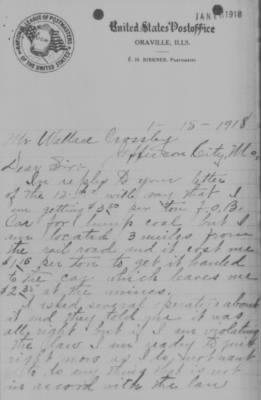 NATIONAL LEAGUE OF POSTMASTERS
OF THE UNITED STATES
JAN 1918
United States Postoffice
ORAVILLE, ILLS.
Postmaster
1-15-1918
Mr Wallace Crossley
Jefferson City, Mo,
Dear Sir:
In reply to your letter
of the 12- will say that I
am getting $3 per ton F.O.B.
Car for lump coal but I
am located 3 miles from
the rail road and it cost me
$1.15 per ton to get it hauled
to the car which leaves me
$2.35 at the mines.
I asked several operators about
it and they told me it was
all right but if I am violating
the law I am ready to quit
right now as I do not want
to do any thing that is not
in accord with the law